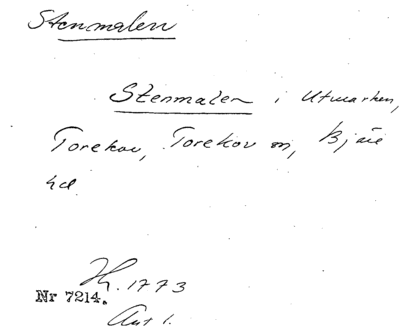 Stenmalen
Stenmalen i Utmarken,
Torekov, Torekov sn, Bjäre
hd
H. 1773
Nr 7214.
Ant 1.